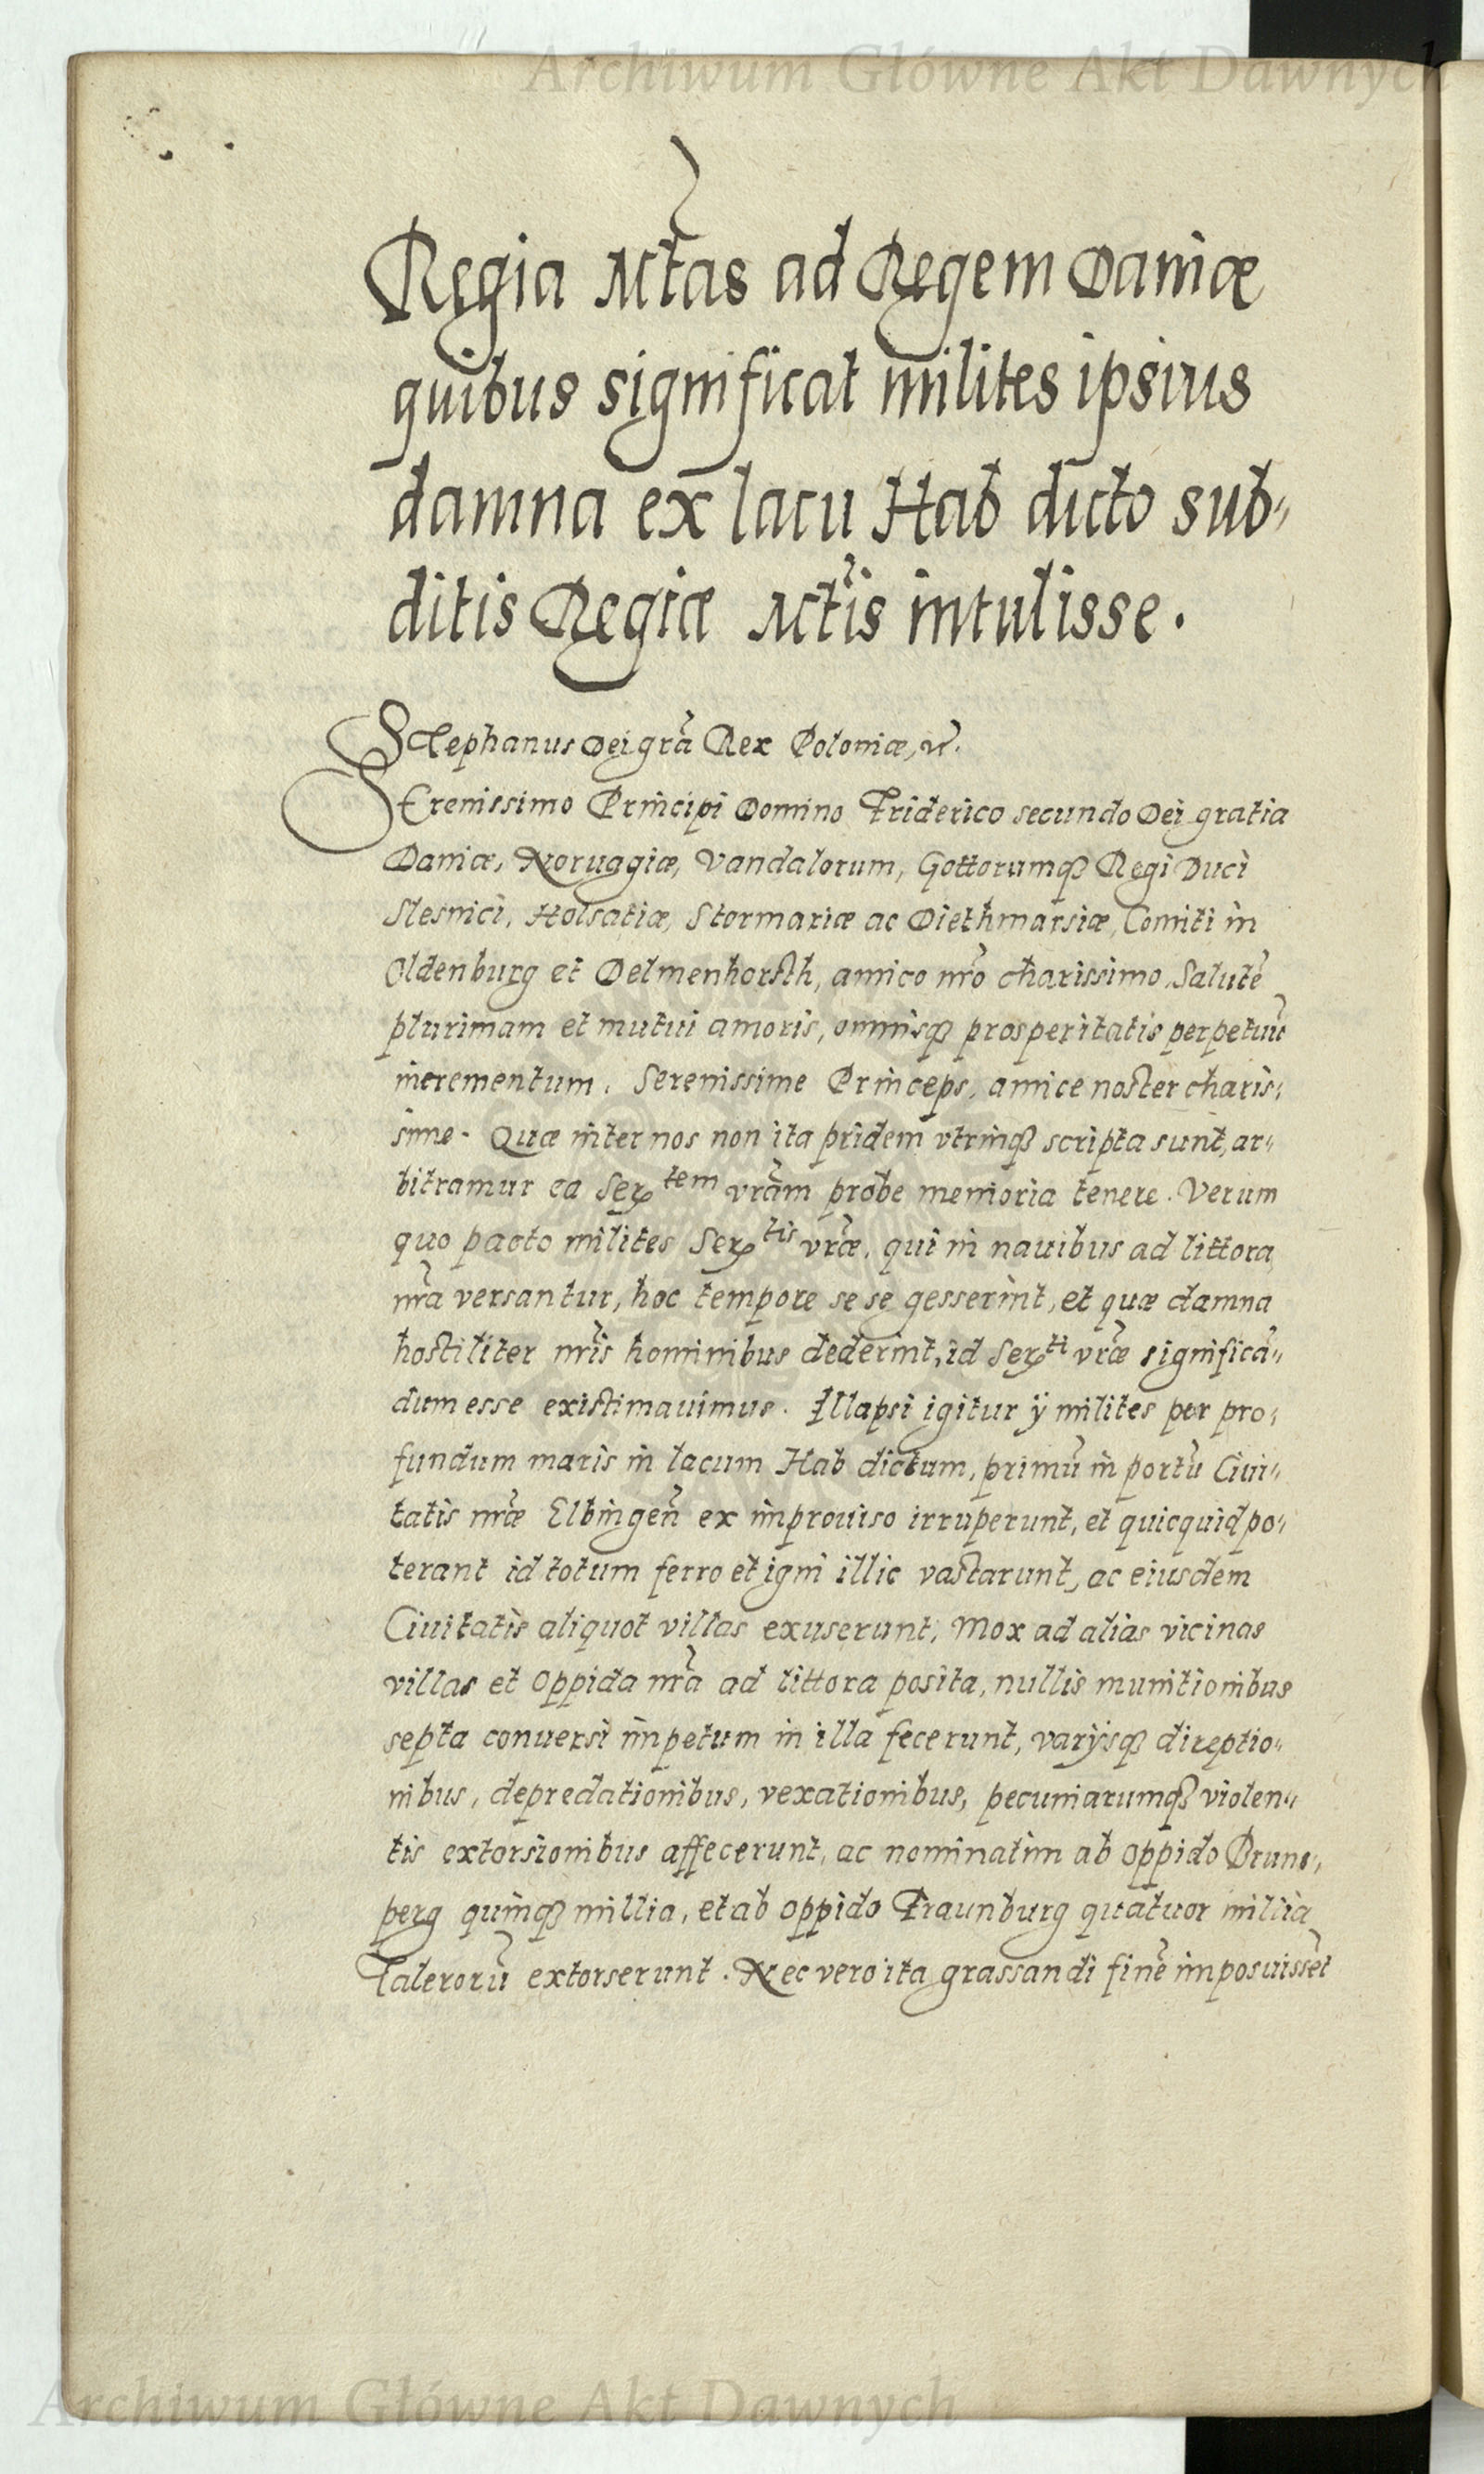 Archiwum Główne Akt Dawnych
Regia Mtas ad Regem Daniæ
quibus significat milites ipsius
damna ex lacu Hab dicto sub„
ditis Regiæ Mtis intulisse.
Stephanus Dei grã Rex Poloniæ, &c.
SErenissimo Principi Domino Friderico secundo Dei gratia
Daniæ, Noruagiæ, Vandalorum, Gottorumqꝫ Regi Duci
Slesuici, Holsatiæ, Stormariæ ac Diethmarsiæ, Comiti in
Oldenburg et Delmenhorsth, amico nr̃o charissimo, Salutẽ
plurimam et mutui amoris, omnisqꝫ prosperitatis perpetuũ
incrementum. Serenissime Princeps, amice noster charis„
sime. Quæ inter nos non ita pridem vtrinqꝫ scripta sunt, ar„
bitramur ea Serᵗᵉᵐ vrãm probe memoria tenere. Verum
quo pacto milites Serᵗⁱˢ vræ̃, qui in nauibus ad littora
nr̃a versantur, hoc tempore se se gesserint, et quæ damna
hostiliter nr̃is hominibus dederint, id Serᵗⁱ vræ̃ significã„
dum esse existimauimus. Illapsi igitur ÿ milites per pro„
fundum maris in lacum Hab dictum, primũ in portũ Ciui„
tatis nræ̃ Elbingeñ ex improuiso irruperunt, et quicquid po„
terant id totum ferro et igni illic vastarunt, ac eiusdem
Ciuitatis aliquot villas exuserunt, Mox ad alias vicinas
villas et oppida nr̃a ad littora posita, nullis munitionibus
septa conuersi impetum in illa fecerunt, varÿsqꝫ direptio„
nibus, depredationibus, vexationibus, pecuniarumqꝫ violen„
tis extorsionibus affecerunt, ac nominatim ab oppido Bruns„
perg quinqꝫ millia, et ab oppido Fraunburg quatuor millia
Talerorũ extorserunt. Nec vero ita grassandi finẽ imposuissẽt
Archiwum Główne Akt Dawnych